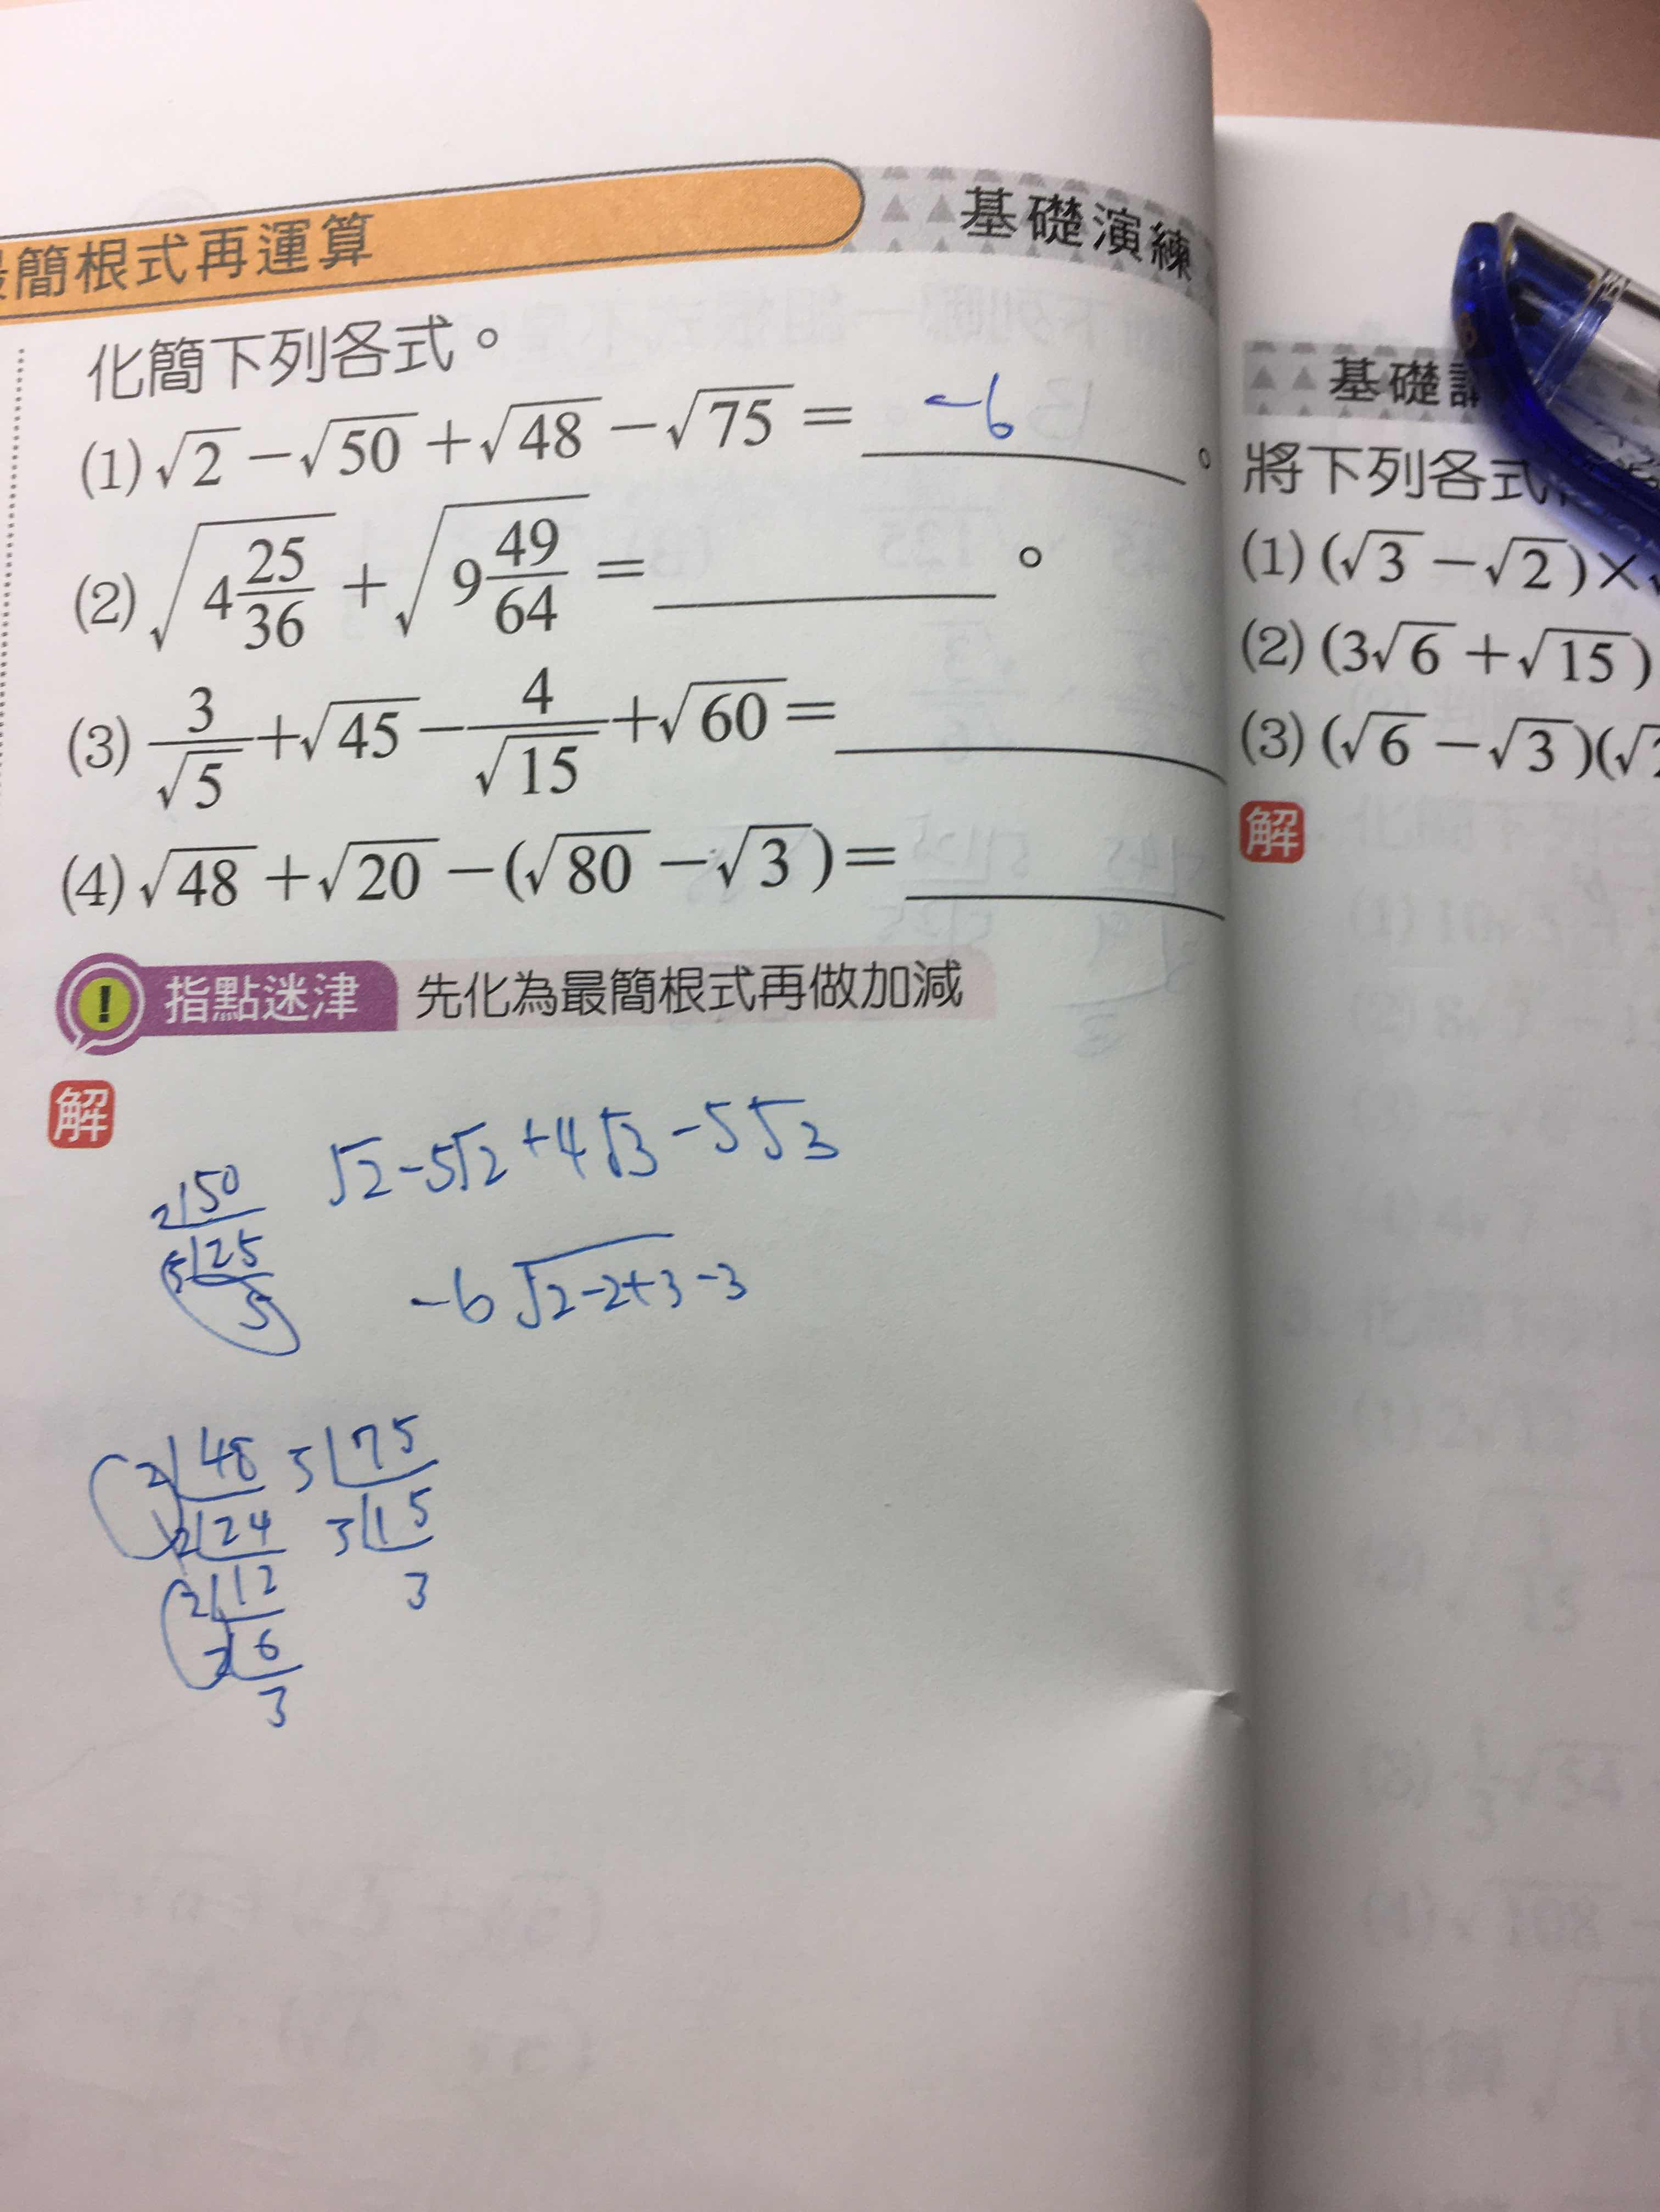 簡根式再運算
基礎演練
化簡下列各式。
(1) √2 − √50 + √48 − √75 = -6 。
(2) √(4 25/36) + √(9 49/64) = ______ 。
(3) 3/√5 + √45 − 4/√15 + √60 = ______
(4) √48 + √20 − (√80 − √3) = ______
! 指點迷津 先化為最簡根式再做加減
解
√2 - 5√2 + 4√3 - 5√3
-6 √2-2+3-3
2 50
5 25
5
2 48
2 24
2 12
2 6
3
5 75
15
3
基礎
將下列各式
(1) (√3 − √2) ×
(2) (3√6 + √15)
(3) (√6 − √3)(√
解